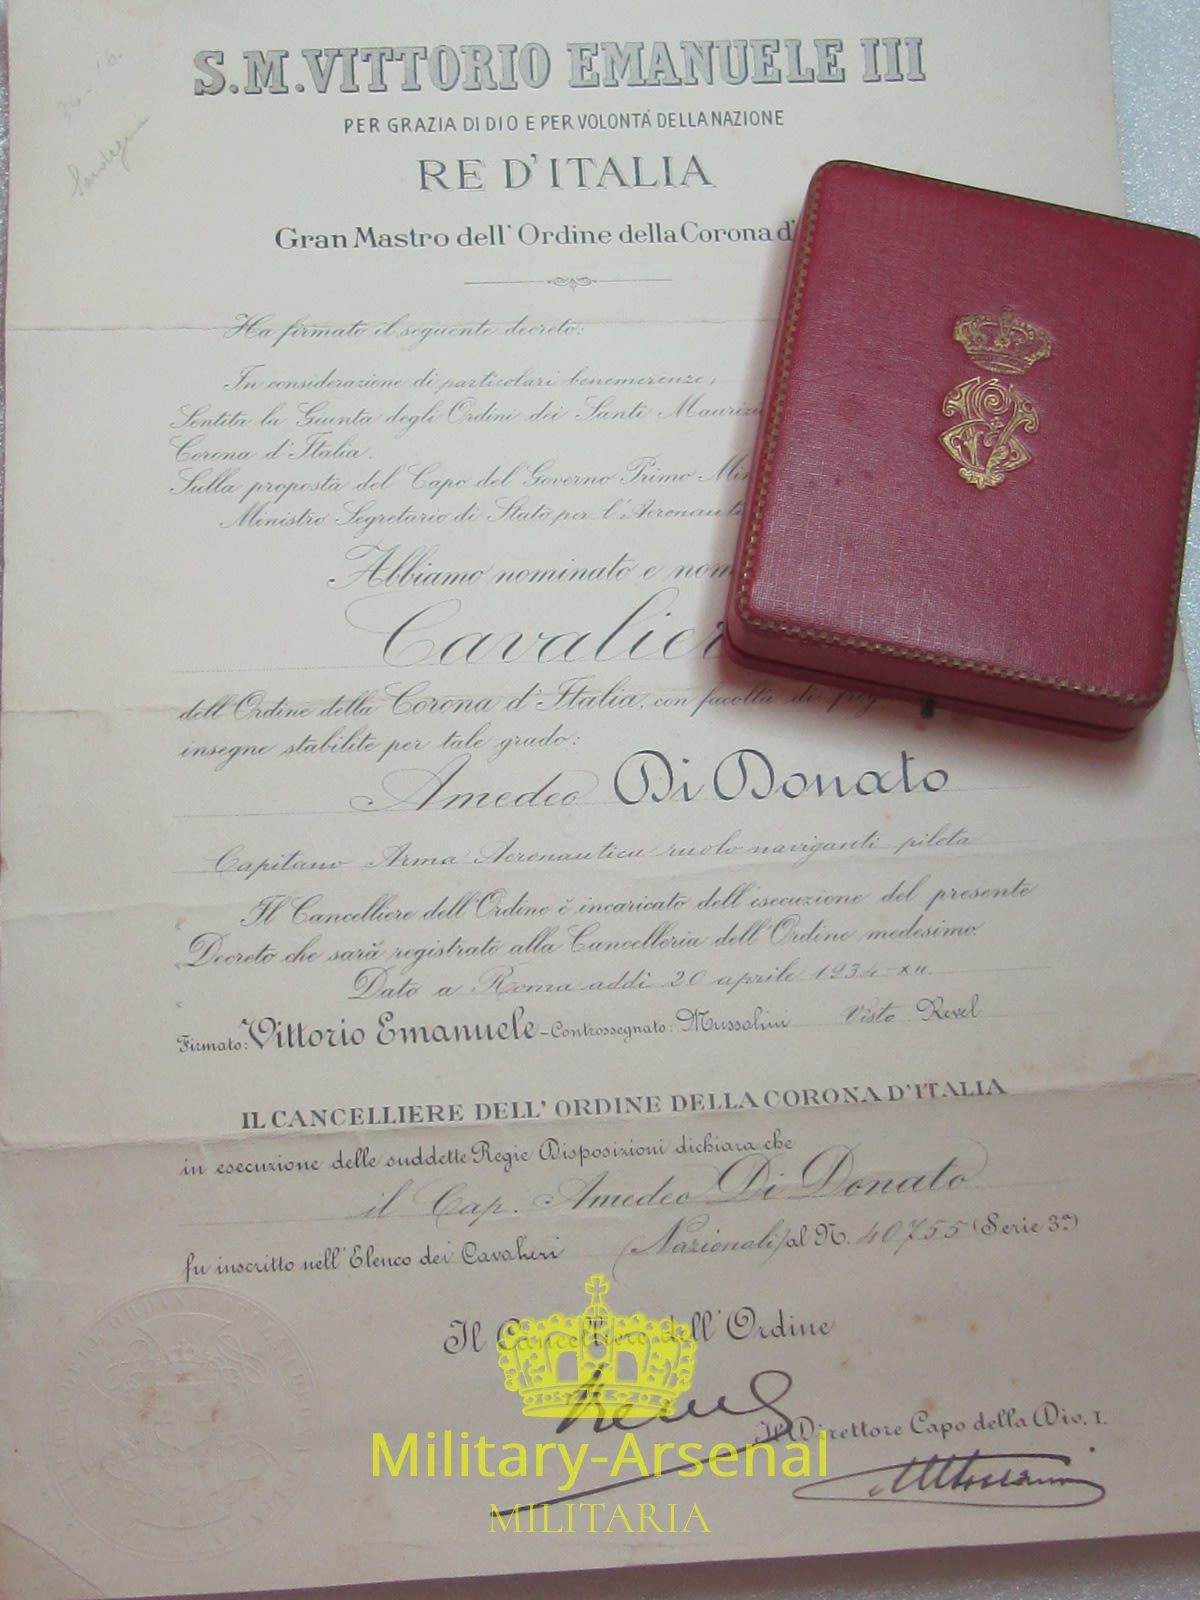 S.M. VITTORIO EMANUELE III
PER GRAZIA DI DIO E PER VOLONTÀ DELLA NAZIONE
RE D'ITALIA
Gran Mastro dell' Ordine della Corona d'
Ha firmato il seguente decreto:
In considerazione di particolari benemerenze;
Sentita la Giunta degli Ordini dei Santi Maurizi
Corona d'Italia.
Sulla proposta del Capo del Governo Primo Min
Ministro Segretario di Stato per l'Aeronauti
Abbiamo nominato e nom
Cavalier
dell'Ordine della Corona d'Italia, con facoltà di freg
insegne stabilite per tale grado:
Amedeo Di Donato
Capitano Arma Aeronautica ruolo naviganti pilota
Il Cancelliere dell'Ordine è incaricato dell'esecuzione del presente
Decreto che sarà registrato alla Cancelleria dell'Ordine medesimo.
Dato a Roma addì 20 aprile 1934-XII.
Firmato: Vittorio Emanuele - Controssegnato: Mussolini Visto Revel
IL CANCELLIERE DELL' ORDINE DELLA CORONA D'ITALIA
in esecuzione delle suddette Regie Disposizioni dichiara che
il Cap. Amedeo Di Donato
fu inscritto nell'Elenco dei Cavalieri (Nazionali) al N. 40755 (Serie 3ª)
Il Cancelliere dell' Ordine
Revel
Il Direttore Capo della Div. I.
Military-Arsenal
MILITARIA